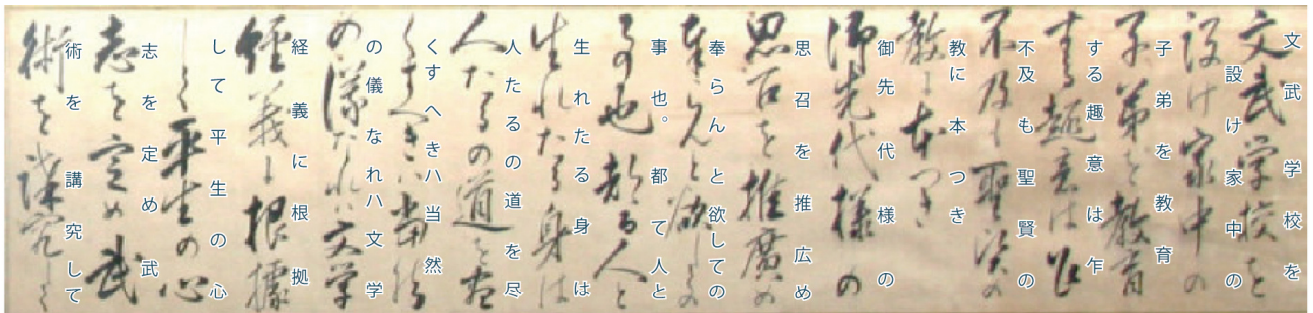 文武学校を
設け家中の
子弟を教育
する趣意は乍
不及も聖賢の
教に本つき
御先代様の
思召を推広め
奉らんと欲しての
事也。都て人と
生れたる身は
人たるの道を尽
くすへきハ当然
の儀なれハ文学
経義に根拠
して平生の心
志を定め武
術を講究して